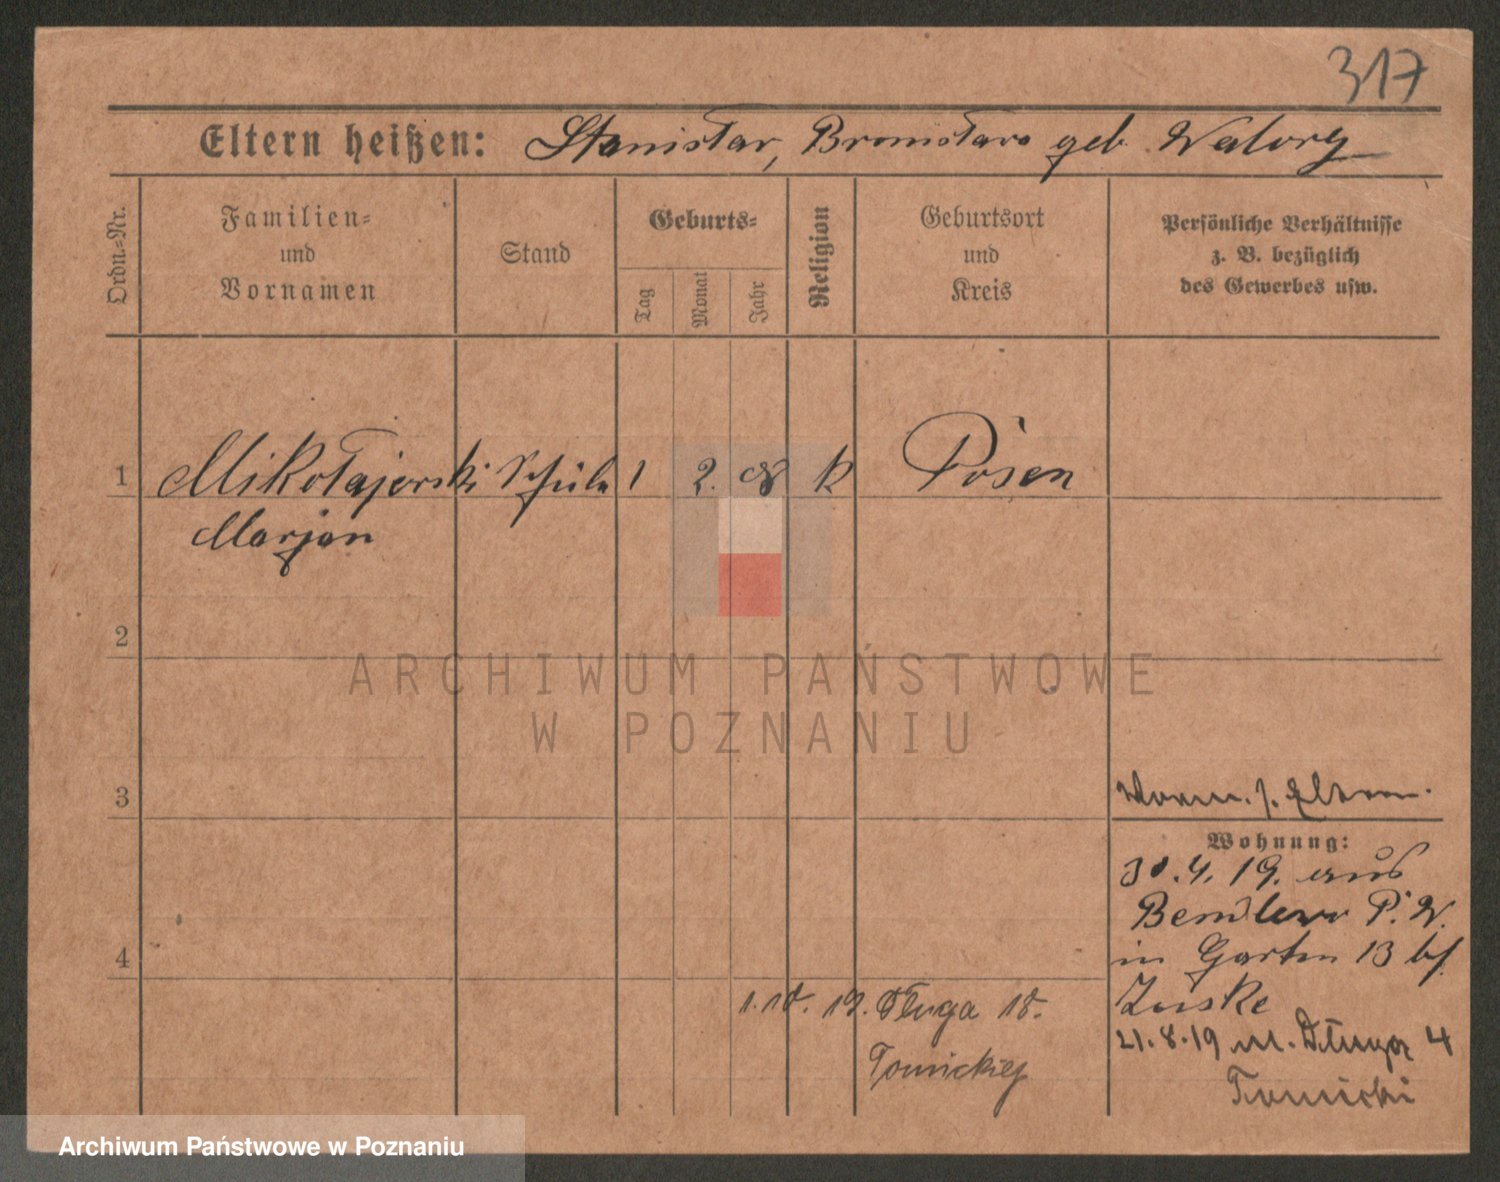 317
Eltern heißen: Stanisław, Bronisława geb. Walory
Ordn.-Nr.
Familien- und Vornamen
Stand
Geburts-
Tag
Monat
Jahr
Religion
Geburtsort und Kreis
Persönliche Verhältnisse
z. B. bezüglich
des Gewerbes usw.
1 Mikołajewski Schüler 1 2. 08 k Posen
Marjan
2
ARCHIWUM PAŃSTWOWE
W POZNANIU
3
Eltern.
Wohnung:
30.4.19. aus
Bendlewo P. W.
in Garten 13 bf
Zuske
4
1.10.19. Długa 10.
Tomickiej
21.8.19 n. Długa 4
Tomicki
Archiwum Państwowe w Poznaniu